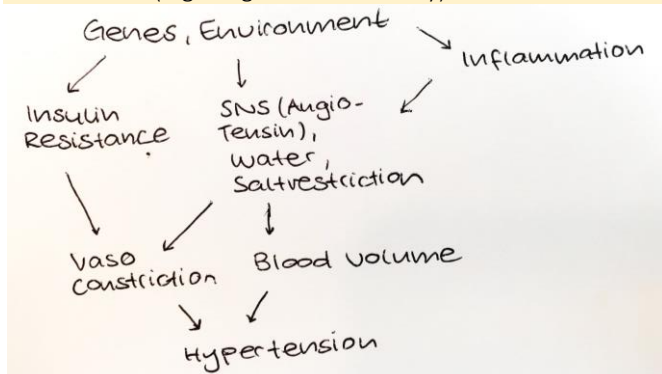 Genes, Environment
Inflammation
Insulin
Resistance
SNS (Angio-
Tensin),
Water,
Saltrestriction
Vaso
constriction
Blood volume
Hypertension